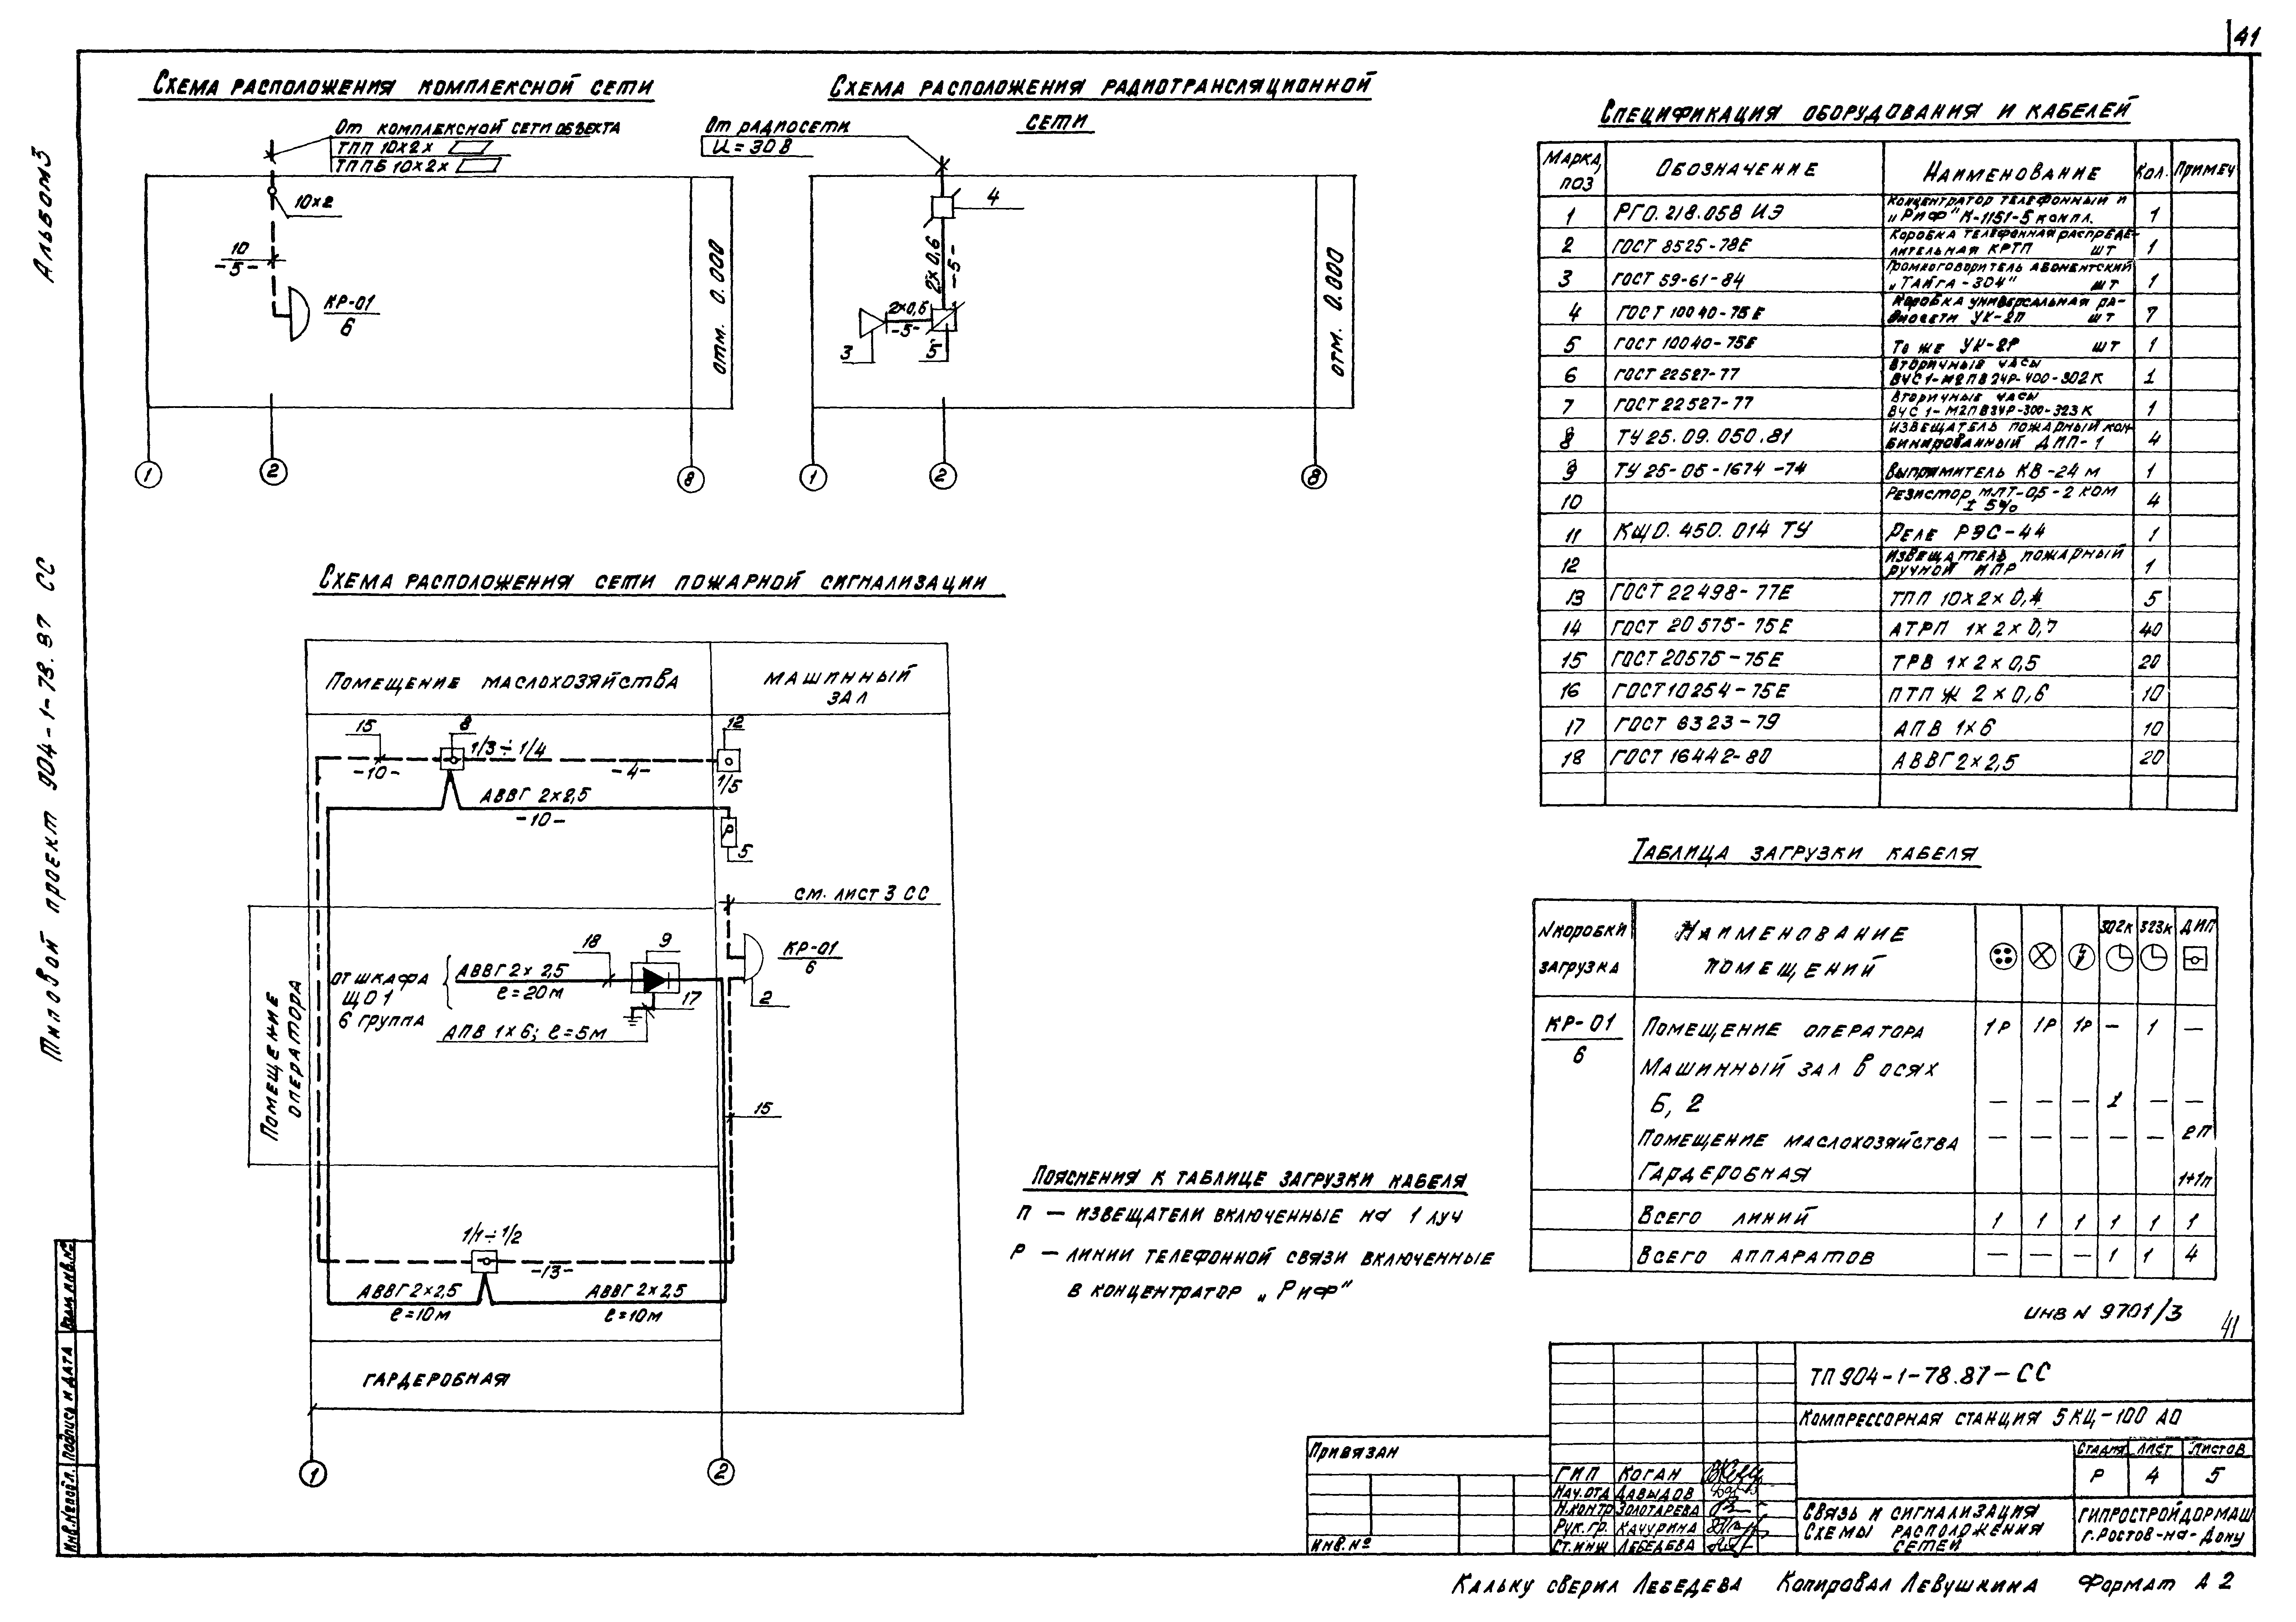 41
Альбом 3
Типовой проект 904-1-78.87 СС
Схема расположения комплексной сети
От комплексной сети объекта
ТПП 10×2×
ТППБ 10×2×
10×2
10
-5-
КР-01
6
отм. 0.000
1
2
8
Схема расположения радиотрансляционной
сети
От радиосети
U = 30 В
4
2×0,6
-5-
2×0,6
-5-
3
5
отм. 0.000
1
2
8
Схема расположения сети пожарной сигнализации
Помещение маслохозяйства
Машинный
зал
15
8
12
1/3÷1/4
-10-
-4-
1/5
АВВГ 2×2,5
-10-
5
см. лист 3 СС
Помещение
оператора
От шкафа
ЩО1
6 группа
АВВГ 2×2,5
ℓ=20м
18
9
17
АПВ 1×6; ℓ=5м
КР-01
6
2
15
1/1÷1/2
-13-
АВВГ 2×2,5
ℓ=10м
АВВГ 2×2,5
ℓ=10м
Гардеробная
1
2
Спецификация оборудования и кабелей
Марка, поз Обозначение Наименование Кол. Примеч
1 РГО.218.058 ИЭ Концентратор телефонный и „Риф" К-1151-5 компл. 1
2 ГОСТ 8525-78Е Коробка телефонная распределительная КРТП шт 1
3 ГОСТ 59-61-84 Громкоговоритель абонентский „Тайга-304" шт 1
4 ГОСТ 10040-75Е Коробка универсальная радиосети УК-2П шт 7
5 ГОСТ 10040-75Е То же УК-2Р шт 1
6 ГОСТ 22527-77 Вторичные часы ВЧС1-М2ПВ24Р-400-302К 1
7 ГОСТ 22527-77 Вторичные часы ВЧС1-М2ПВ24Р-300-323К 1
8 ТУ 25.09.050.81 Извещатель пожарный комбинированный ДИП-1 4
9 ТУ 25-05-1674-74 Выпрямитель КВ-24м 1
10 Резистор МЛТ-0,5-2 ком ± 5% 4
11 КЩО.450.014 ТУ Реле РЭС-44 1
12 Извещатель пожарный ручной ИПР 1
13 ГОСТ 22498-77Е ТПП 10×2×0,4 5
14 ГОСТ 20575-75Е АТРП 1×2×0,7 40
15 ГОСТ 20575-75Е ТРВ 1×2×0,5 20
16 ГОСТ 10254-75Е ПТПЖ 2×0,6 10
17 ГОСТ 6323-79 АПВ 1×6 10
18 ГОСТ 16442-80 АВВГ 2×2,5 20
Таблица загрузки кабеля
№ коробки загрузка Наименование помещений 302к 323к ДИП
КР-01 6 Помещение оператора 1Р 1Р 1Р — 1 —
Машинный зал в осях
Б, 2 — — — 1 — —
Помещение маслохозяйства — — — — — 2П
Гардеробная 1+1п
Всего линий 1 1 1 1 1 1
Всего аппаратов — — — 1 1 4
Пояснения к таблице загрузки кабеля
П — извещатели включенные на 1 луч
Р — линии телефонной связи включенные
в концентратор „Риф"
инв N 9701/3
41
ТП 904-1-78.87-СС
Компрессорная станция 5КЦ-100 АО
Стадия Лист Листов
Р 4 5
Связь и сигнализация
Схемы расположения
сетей
Гипростройдормаш
г. Ростов-на-Дону
ГИП Коган
Нач.отд Давыдов
Н.контр Золотарева
Рук.гр. Качурина
Ст.инж Лебедева
Привязан
Инв.№
Взам.инв.№
Подпись и дата
Инв.№ подл.
Кальку сверил Лебедева Копировал Левушкина Формат А2